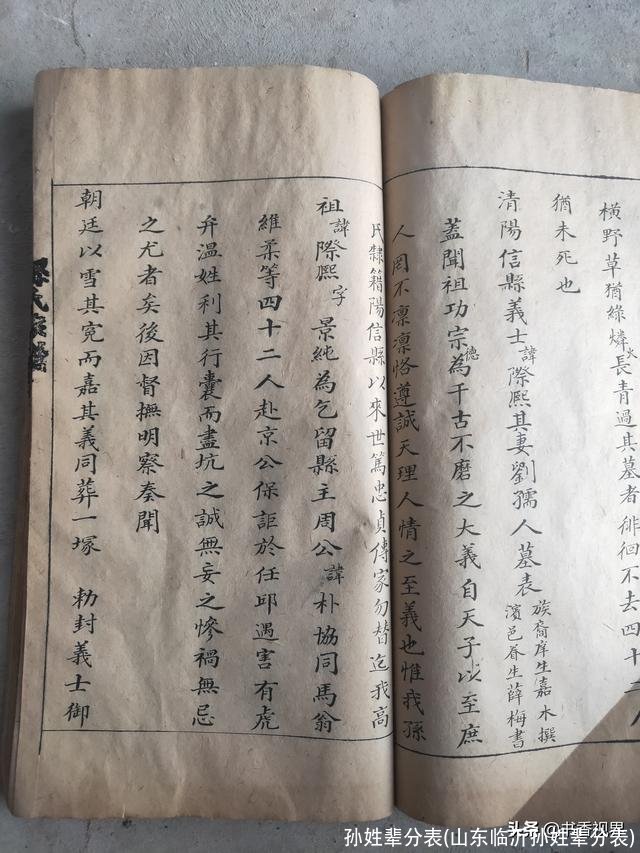 橫野草猶綠燐火長青過其墓者徘徊不去四十二人
猶未死也
清陽信縣義士諱際熙其妻劉孺人墓表
族裔庠生嘉木撰
濱邑眷生薛梅書
蓋聞祖功宗德為千古不磨之大義自天子以至庶
人罔不凛凛恪遵誠天理人情之至義也惟我孫
氏隸籍陽信縣以來世篤忠貞傳家勿替迄我高
祖諱際熙字景純為乞留縣主周公諱朴協同馬翁
維柔等四十二人赴京公保詎於任邱遇害有虎
弁溫姓利其行囊而盡坑之誠無妄之慘禍無忌
之尤者矣後因督撫明察奏聞
朝廷以雪其冤而嘉其義同葬一塚 勅封義士御
孫氏家譜
头条 @书香视界
孙姓辈分表(山东临沂孙姓辈分表)